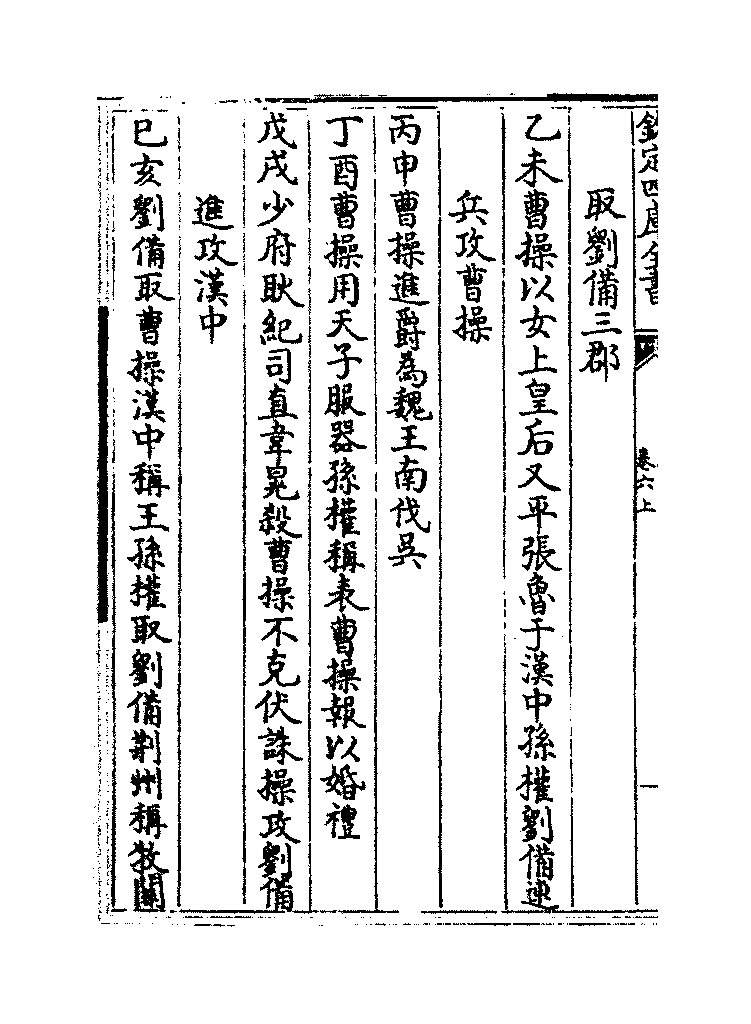 欽定四庫全書
卷六上
取劉備三郡
乙未曹操以女上皇后又平張魯于漢中孫權劉備連
兵攻曹操
丙申曹操進爵為魏王南伐吳
丁酉曹操用天子服器孫權稱表曹操報以婚禮
戊戌少府耿紀司直韋晃殺曹操不克伏誅操攻劉備
進攻漢中
已亥劉備取曹操漢中稱王孫權取劉備荆州稱牧關